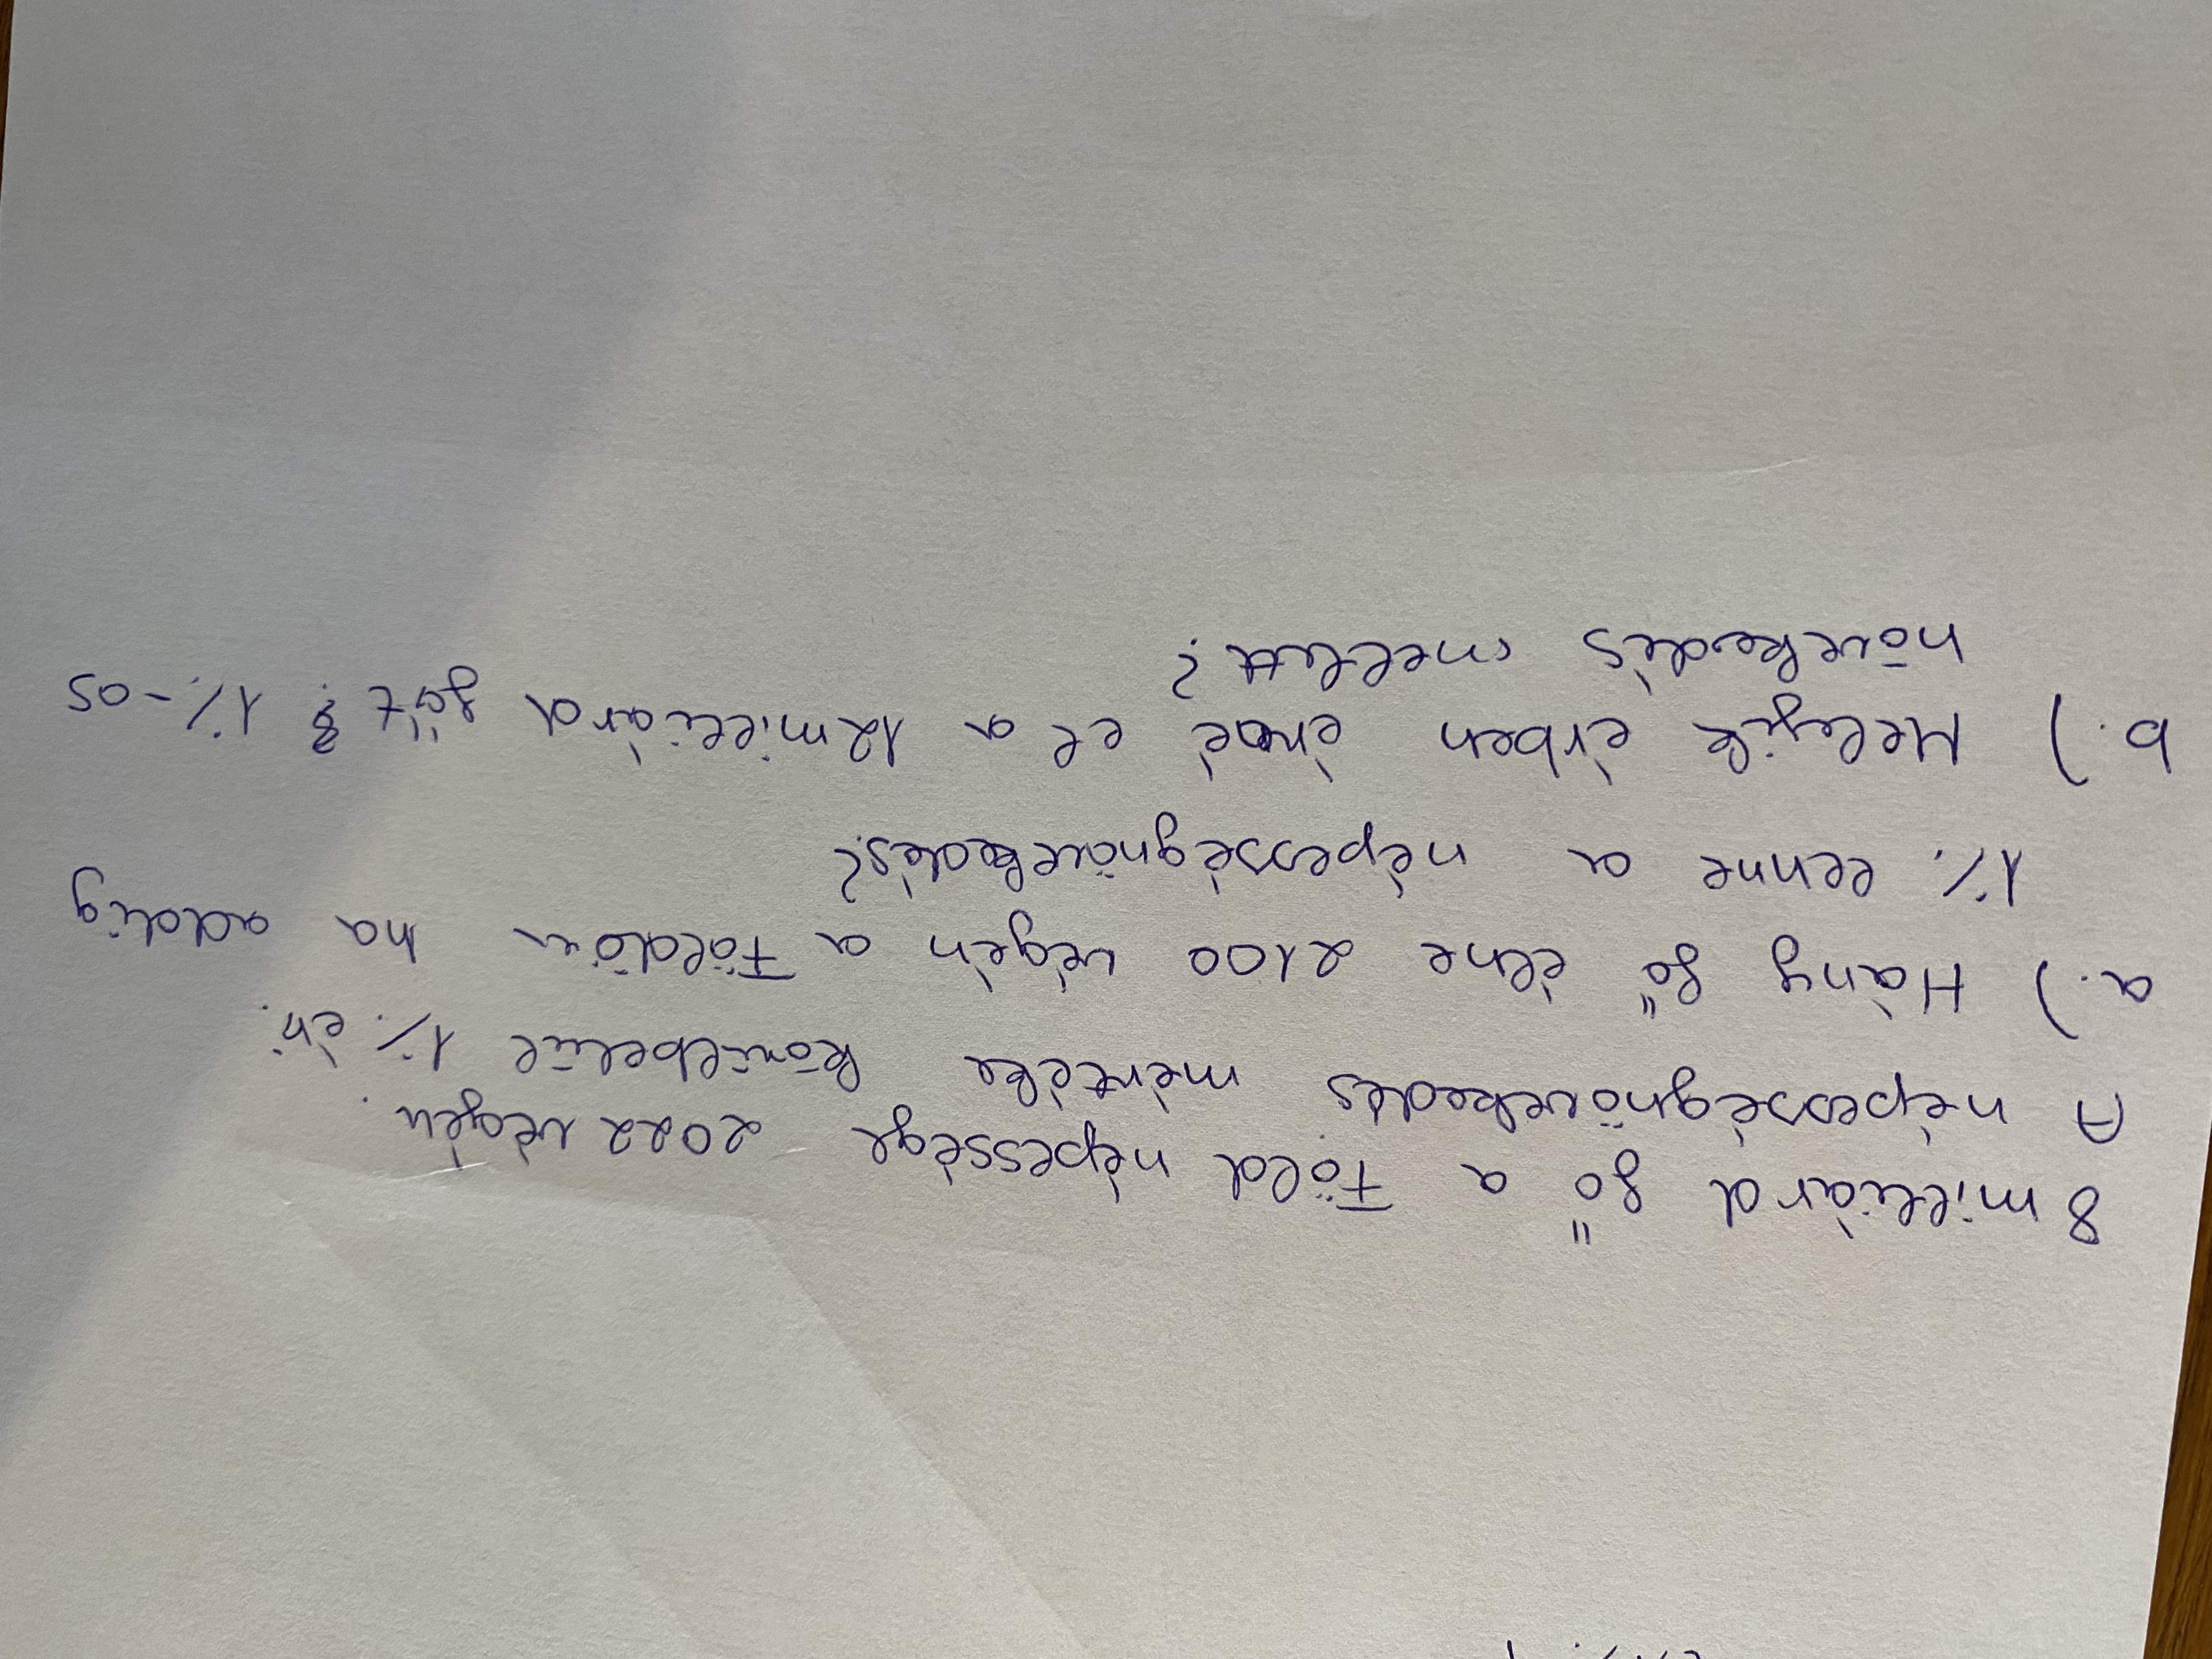 8 milliárd fő a Föld népessége 2022 végén.
A népességnövekedés mértéke körülbelül 1% év.
a.) Hány fő élne 2100 végén a Földön ha addig
1% lenne a népességnövekedés?
b.) Melyik évben érné el a 12 milliárd főt 1%-os
növekedés mellett?